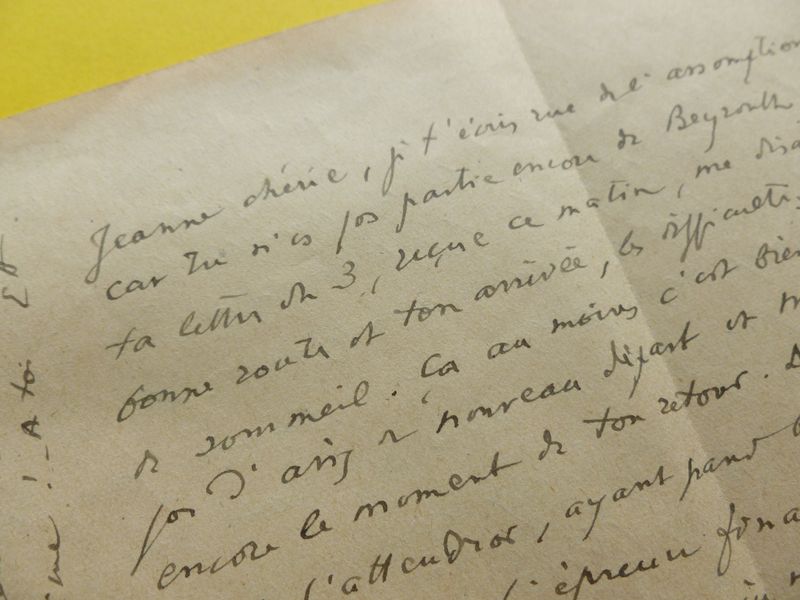 Jeanne chérie, je t'écris rue de l'assomption
car tu n'es pas partie encore de Beyrouth
ta lettre du 3, reçue ce matin, me
bonne route et ton arrivée, les
de sommeil. Ça au moins c'est bien
pas d' de nouveau départ et
encore le moment de ton retour.
l'attendre, ayant
l'épreuve
! A toi